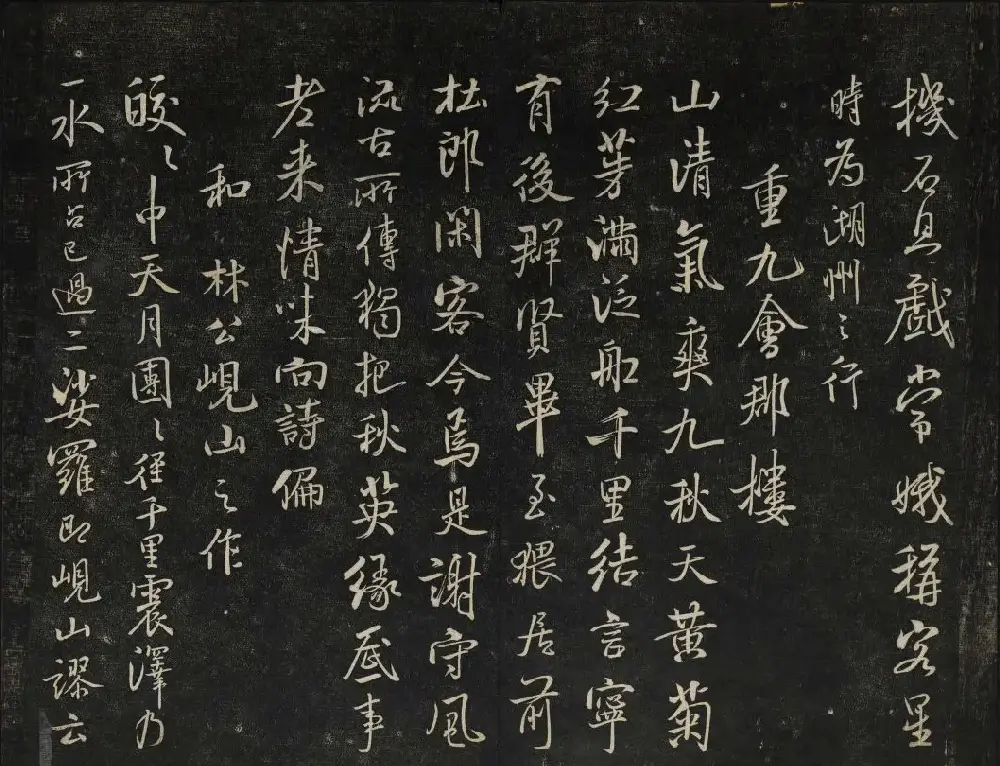 機石息戲常娥稱客星
時為湖州之行
重九會郡樓
山清氣爽九秋天黃菊
紅茱滿泛船千里結言寧
有後群賢畢至猥居前
杜郎閑客今焉是謝守風
流古所傳獨把秋英緣底事
老来情味向詩偏
和林公峴山之作
皎〻中天月團〻徑千里震澤乃
一水所占已過二娑羅即峴山謬云